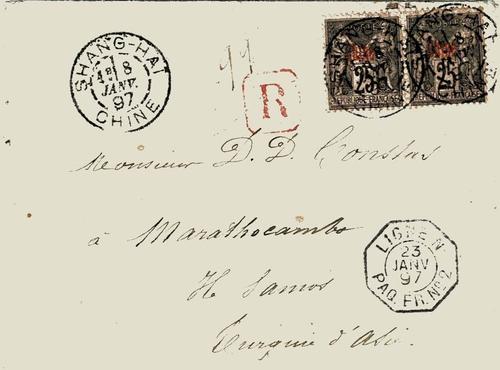 SHANG-HAI
1E 8
JANV.
97
CHINE
99
R
25
25
SHANG-HAI
SHANG-HAI
Monsieur D. D. Constas
à Marathocambo
Ile Samos
Turquie d'Asie
LIGNE N
23
JANV
97
PAQ. FR. Nº 2